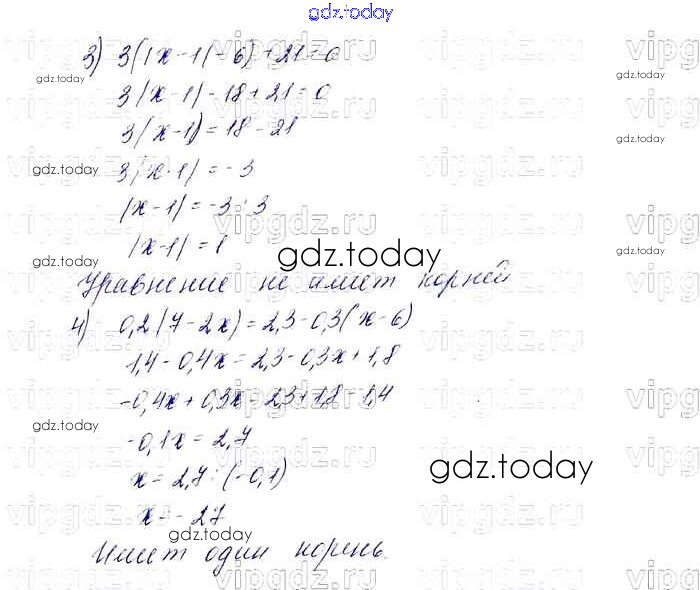 gdz.today
3) 3(|x-1|-6)+21=0
3|x-1|-18+21=0
3|x-1|=18-21
3|x-1|=-3
|x-1|=-3:3
|x-1|=1
Уравнение не имеет корней
4) 0,2(7-2x)=2,3-0,3(x-6)
1,4-0,4x=2,3-0,3x+1,8
-0,4x+0,3x=2,3+1,8-1,4
-0,1x=2,7
x=2,7:(-0,1)
x=-27
Имеет один корень.
gdz.today
gdz.today
gdz.today
gdz.today
gdz.today
gdz.today
gdz.today
gdz.today
gdz.today
gdz.today
gdz.today
vipgdz.ru
vipgdz.ru
vipgdz.ru
vipgdz.ru
vipgdz.ru
vipgdz.ru
vipgdz.ru